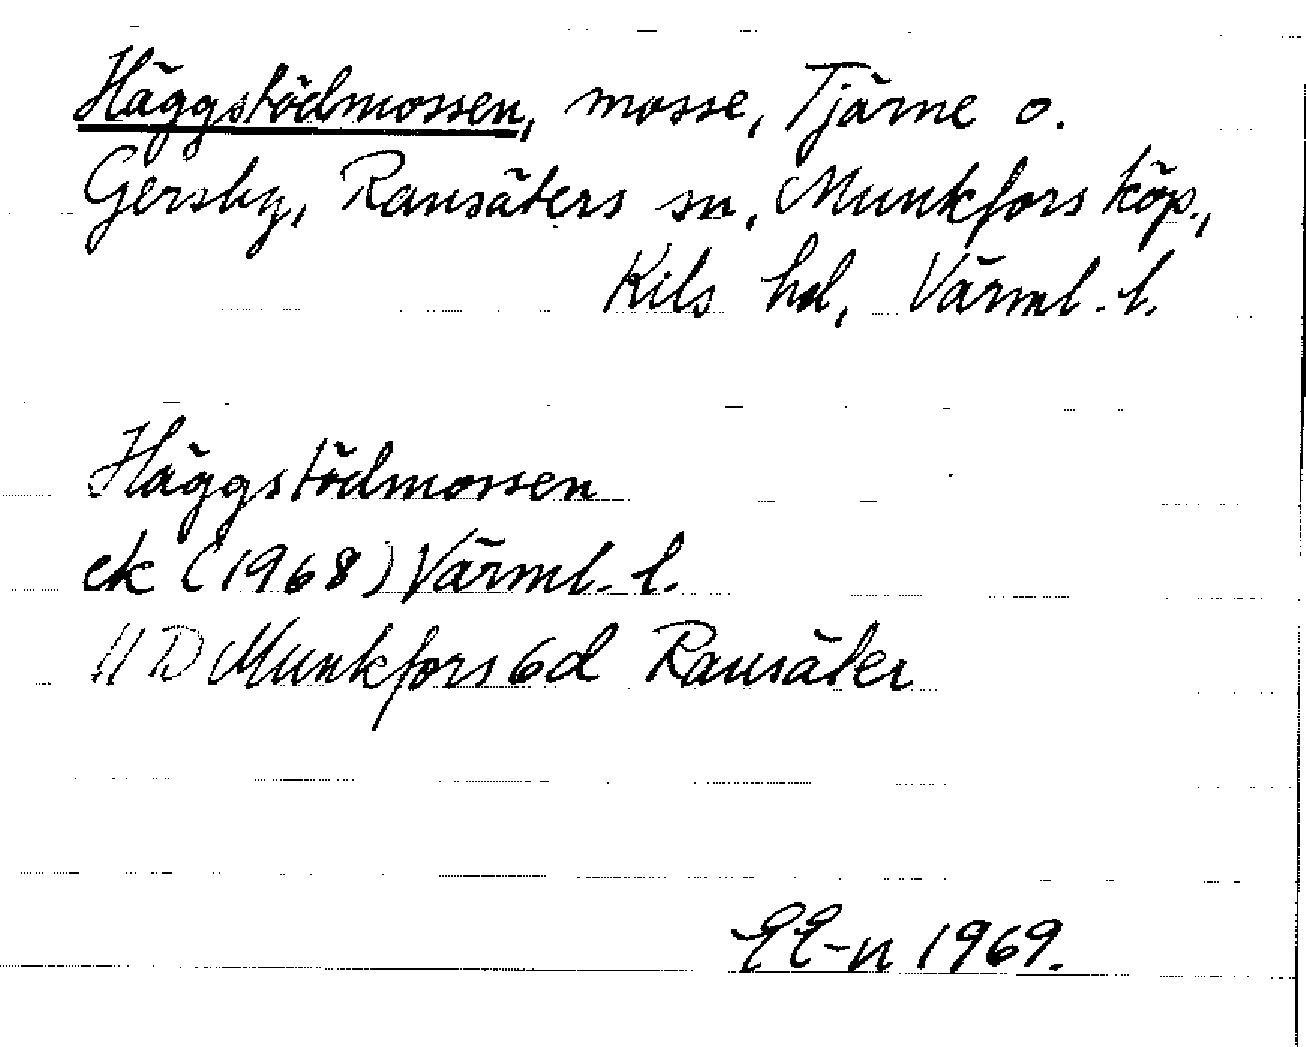 Häggstödmossen, mosse, Tjärne o.
Gersby, Ransäters sn, Munkfors köp.,
Kils hd, Värml. l.
Häggstödmossen
ek (1968) Värml. l.
11 D Munkfors 6d Ransäter
EE-n 1969.